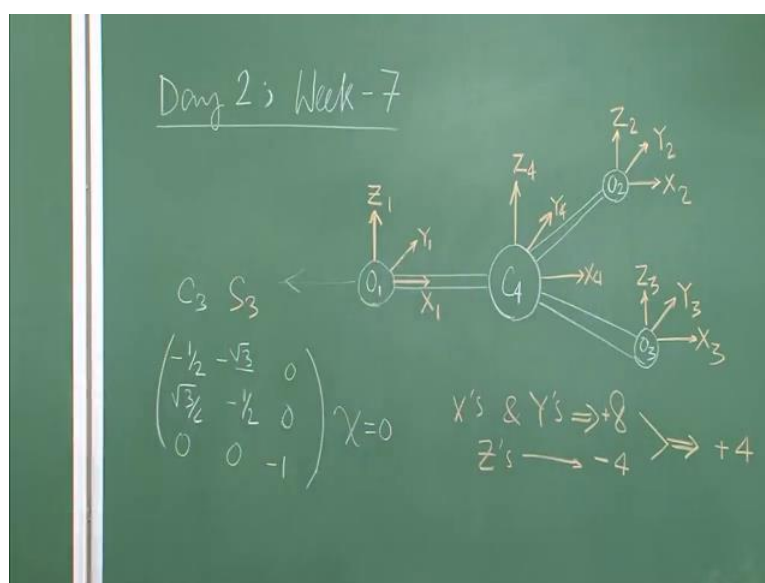 Day 2; Week-7
Z1 Y1 X1 O1
Z4 Y4 X4 C4
Z2 Y2 X2 O2
Z3 Y3 X3 O3
C3 S3
-1/2 -√3 0
√3/2 -1/2 0
0 0 -1
χ=0
X's & Y's ⇒ +8
Z's → -4
⇒ +4